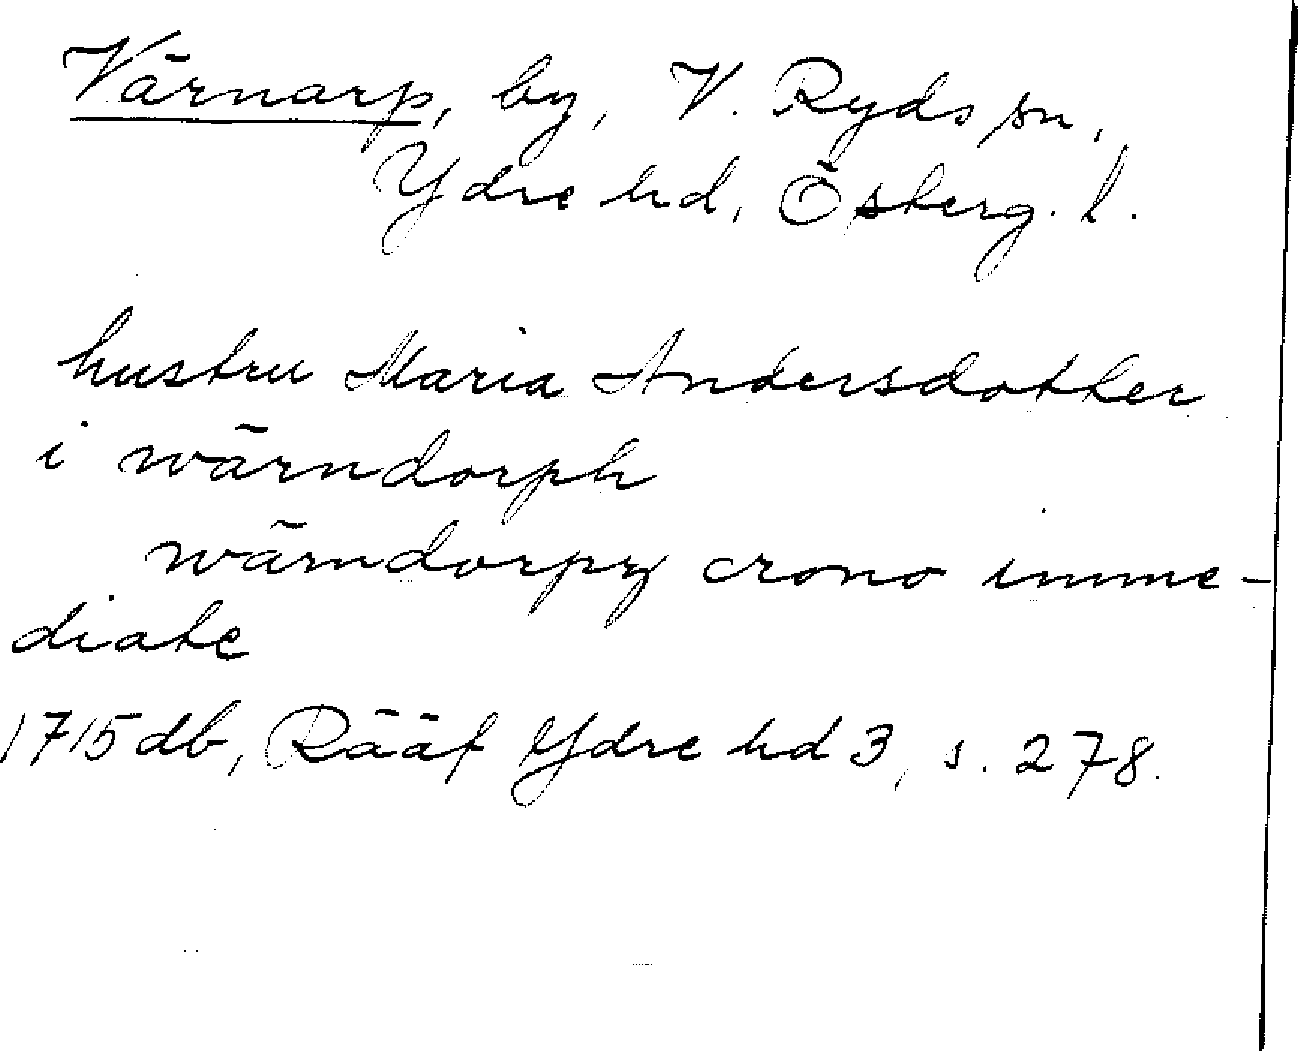 Värnarp, by, V. Ryds sn,
Ydre hd, Österg. l.
hustru Maria Andersdotter
i wärndorph
wärndorpz crono imme-
diate
1715 db, Rääf Ydre hd 3, s. 278.